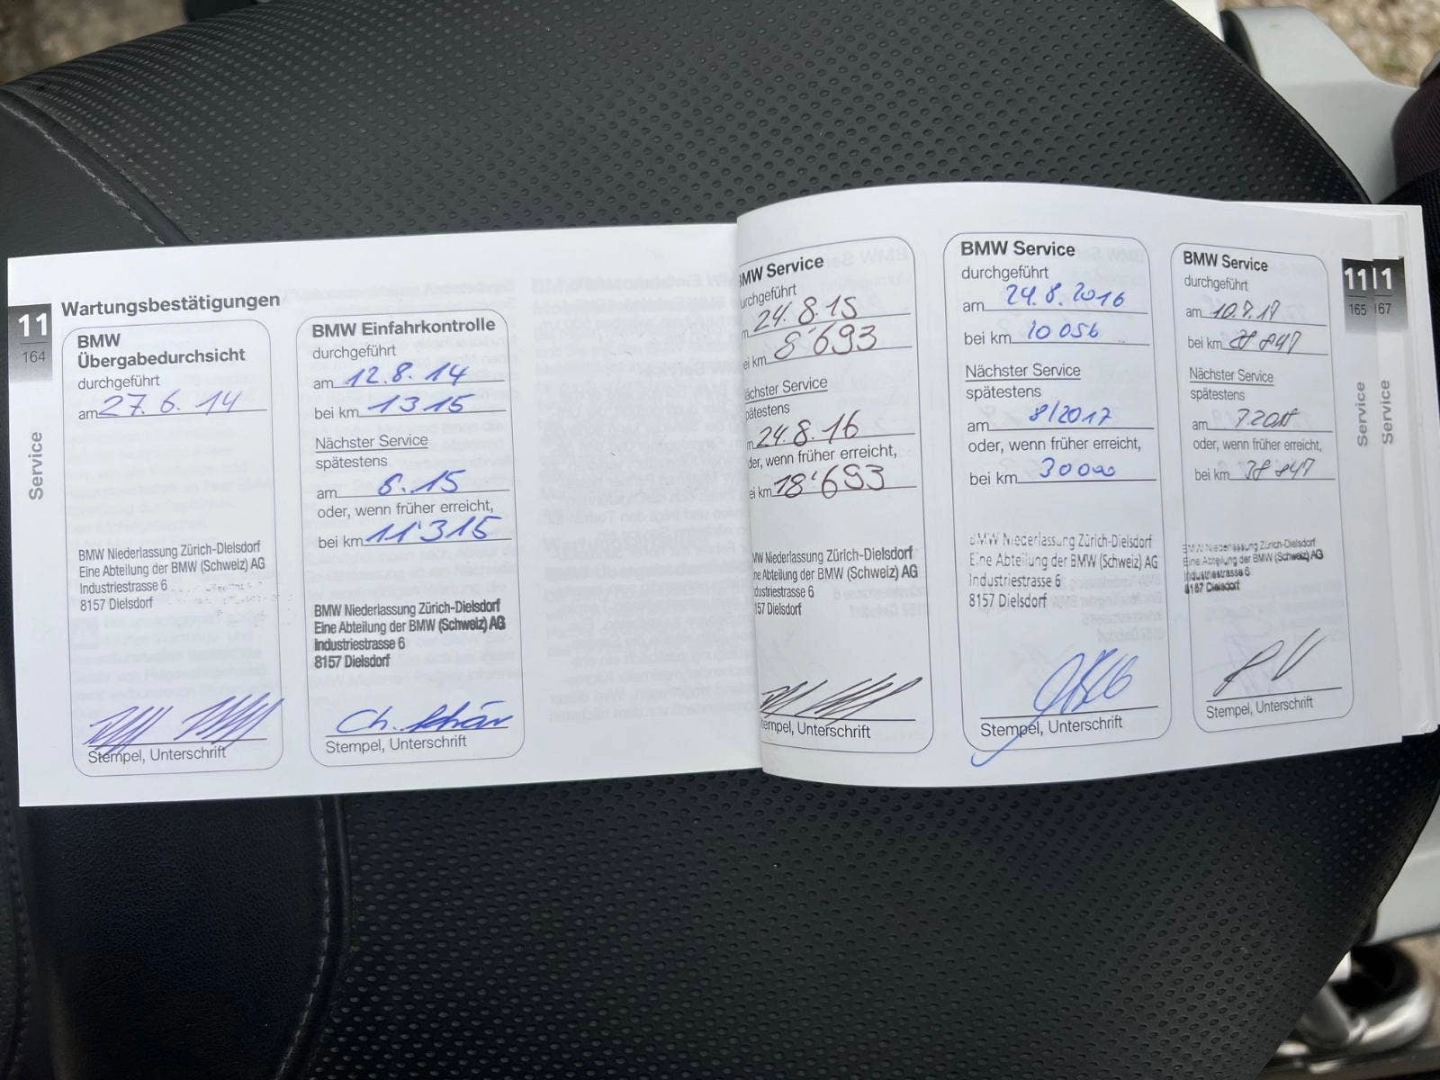 11
164
Service
Wartungsbestätigungen
BMW
Übergabedurchsicht
durchgeführt
am 27.6.14
BMW Niederlassung Zürich-Dielsdorf
Eine Abteilung der BMW (Schweiz) AG
Industriestrasse 6
8157 Dielsdorf
Stempel, Unterschrift
BMW Einfahrkontrolle
durchgeführt
am 12.8.14
bei km 1315
Nächster Service
spätestens
am 6.15
oder, wenn früher erreicht,
bei km 11'315
BMW Niederlassung Zürich-Dielsdorf
Eine Abteilung der BMW (Schweiz) AG
Industriestrasse 6
8157 Dielsdorf
Ch.
Stempel, Unterschrift
BMW Service
urchgeführt
24.8.15
ei km 8'693
ächster Service
pätestens
24.8.16
der, wenn früher erreicht,
ei km 18'693
MW Niederlassung Zürich-Dielsdorf
ne Abteilung der BMW (Schweiz) AG
dustriestrasse 6
157 Dielsdorf
empel, Unterschrift
BMW Service
durchgeführt
am 24.8.2016
bei km 10 056
Nächster Service
spätestens
am 8/2017
oder, wenn früher erreicht,
bei km 30000
BMW Niederlassung Zürich-Dielsdorf
Eine Abteilung der BMW (Schweiz) AG
Industriestrasse 6
8157 Dielsdorf
Stempel, Unterschrift
BMW Service
durchgeführt
am 10.7.17
bei km
Nächster Service
spätestens
am
oder, wenn früher erreicht,
bei km
BMW Niederlassung Zürich-Dielsdorf
Eine Abteilung der BMW (Schweiz) AG
Industriestrasse 6
8157 Dielsdorf
Stempel, Unterschrift
11
165
Service
11
167
Service